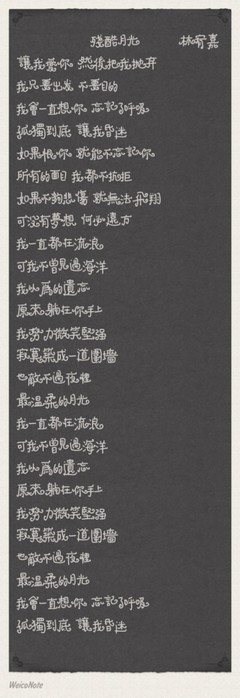 殘酷月光 林宥嘉
讓我愛你 然後把我拋棄
我只要出發 不要目的
我會一直想你 忘記了呼吸
孤獨到底 讓我昏迷
如果恨你 就能不忘記你
所有的面目 我都不抗拒
如果不夠悲傷 就無法飛翔
可沒有夢想 何必遠方
我一直都在流浪
可我不曾見過海洋
我以爲的遺忘
原來躺在你手上
我努力微笑堅強
寂寞築成一道圍墻
也敵不過夜裡
最溫柔的月光
我一直都在流浪
可我不曾見過海洋
我以爲的遺忘
原來躺在你手上
我努力微笑堅強
寂寞築成一道圍墻
也敵不過夜裡
最溫柔的月光
我會一直想你 忘記了呼吸
孤獨到底 讓我昏迷
WeicoNote